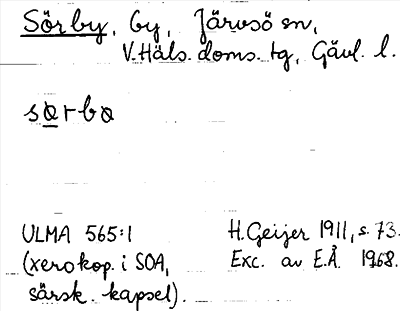 Sörby, by, Järvsö sn,
V.Häls. doms. tg, Gävl. l.
sørbø
ULMA 565:1
(xerokop. i SOA,
särsk. kapsel).
H.Geijer 1911, s. 73.
Exc. av E.Å. 1968.